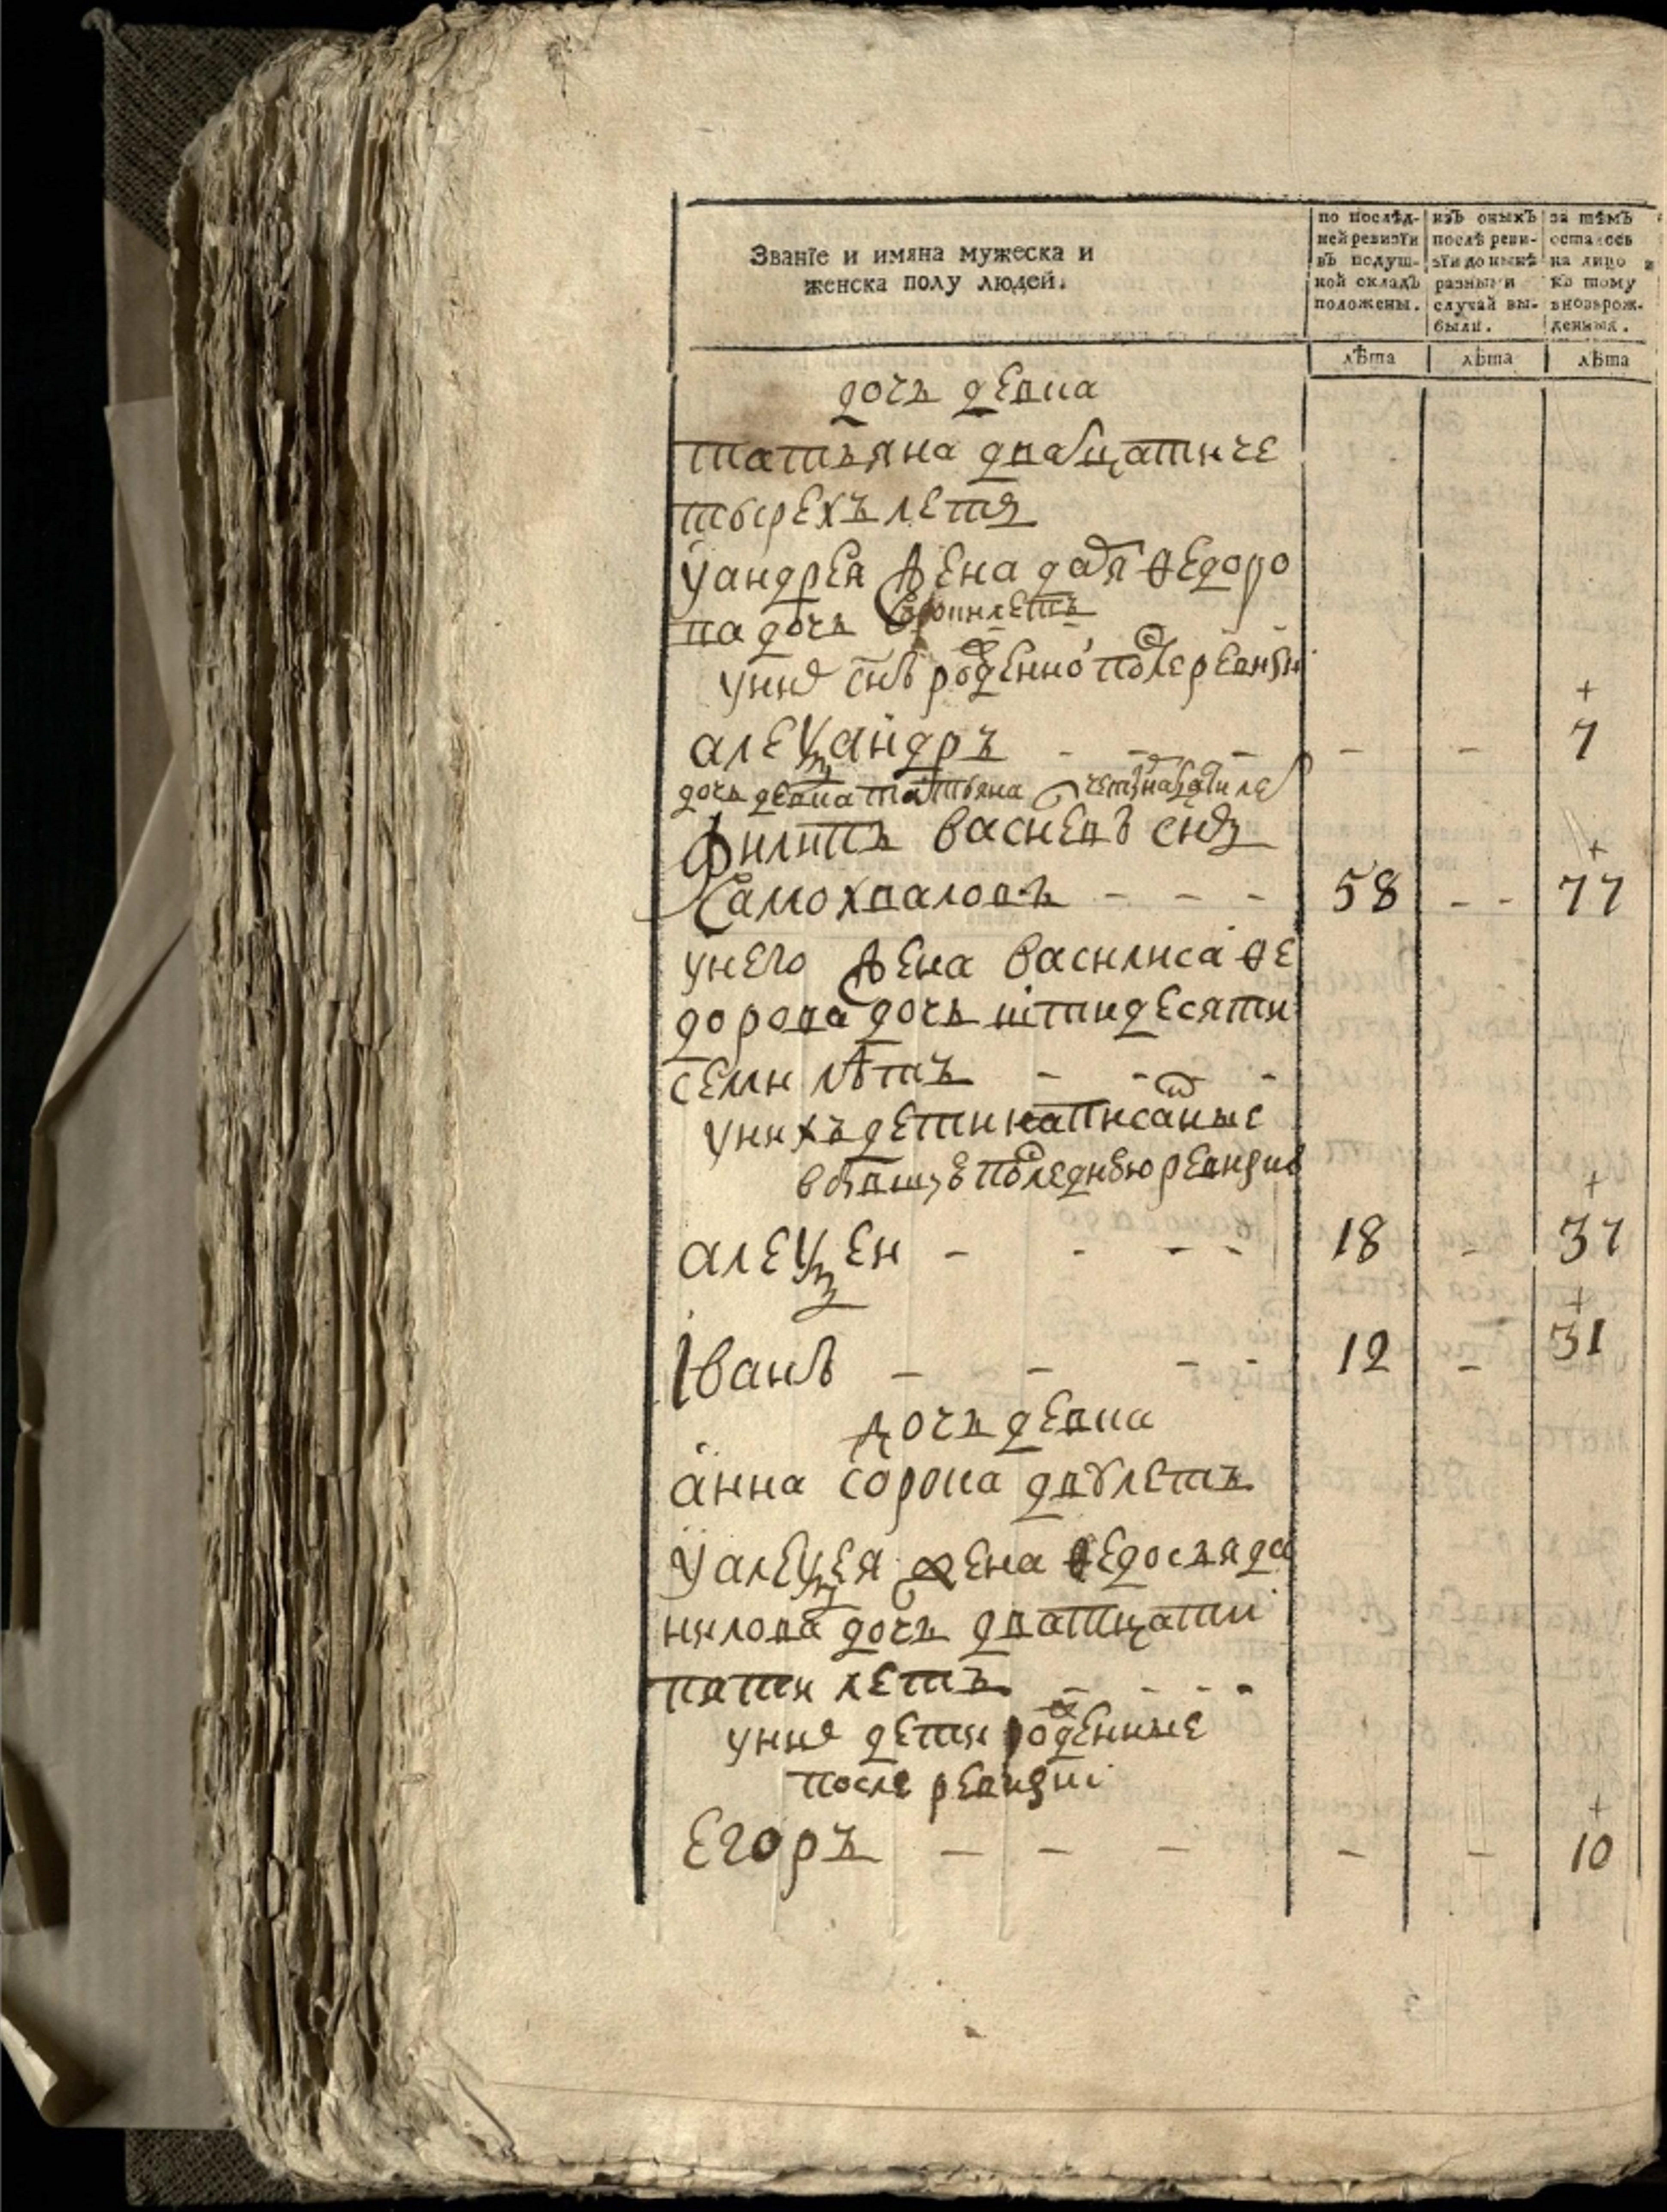 Званїе и имяна мужеска и
женска полу людей.
по послѣд-
ней ревизїи
въ подуш-
ной окладъ
положены.
изъ оныхъ
послѣ реви-
зїи до нынѣ
разными
случай вы-
были.
за тѣмъ
осталось
на лицо
къ тому
вновьрож-
денныя.
лѣта
лѣта
лѣта
дочь девка
татьяна двадцати че
тырехъ летъ
у андрея жена дарья ѳедоро
ва дочь летъ
у них снъ рожденной после ревизии
+
алеѯандръ - - - - - 7
дочь девка татьяна четырнадцати ле
филипъ васиевъ снъ
+
Самохваловъ - - - 58 - - 77
у него жена василиса ѳе
дорова дочь штидесяти
семи лѣтъ - - -
у нихъ дети написаные
в бывшую последнюю ревизию
+
алеѯеи - - - - 18 - 37
+
Iванъ - - - - 12 - 31
дочь девка
анна сорока двухлетъ
у алеѯея жена ѳедосья да
нилова дочь дватцати
пяти летъ - - - -
у них дети рожденные
после ревизиі
+
Егоръ - - - - - 10